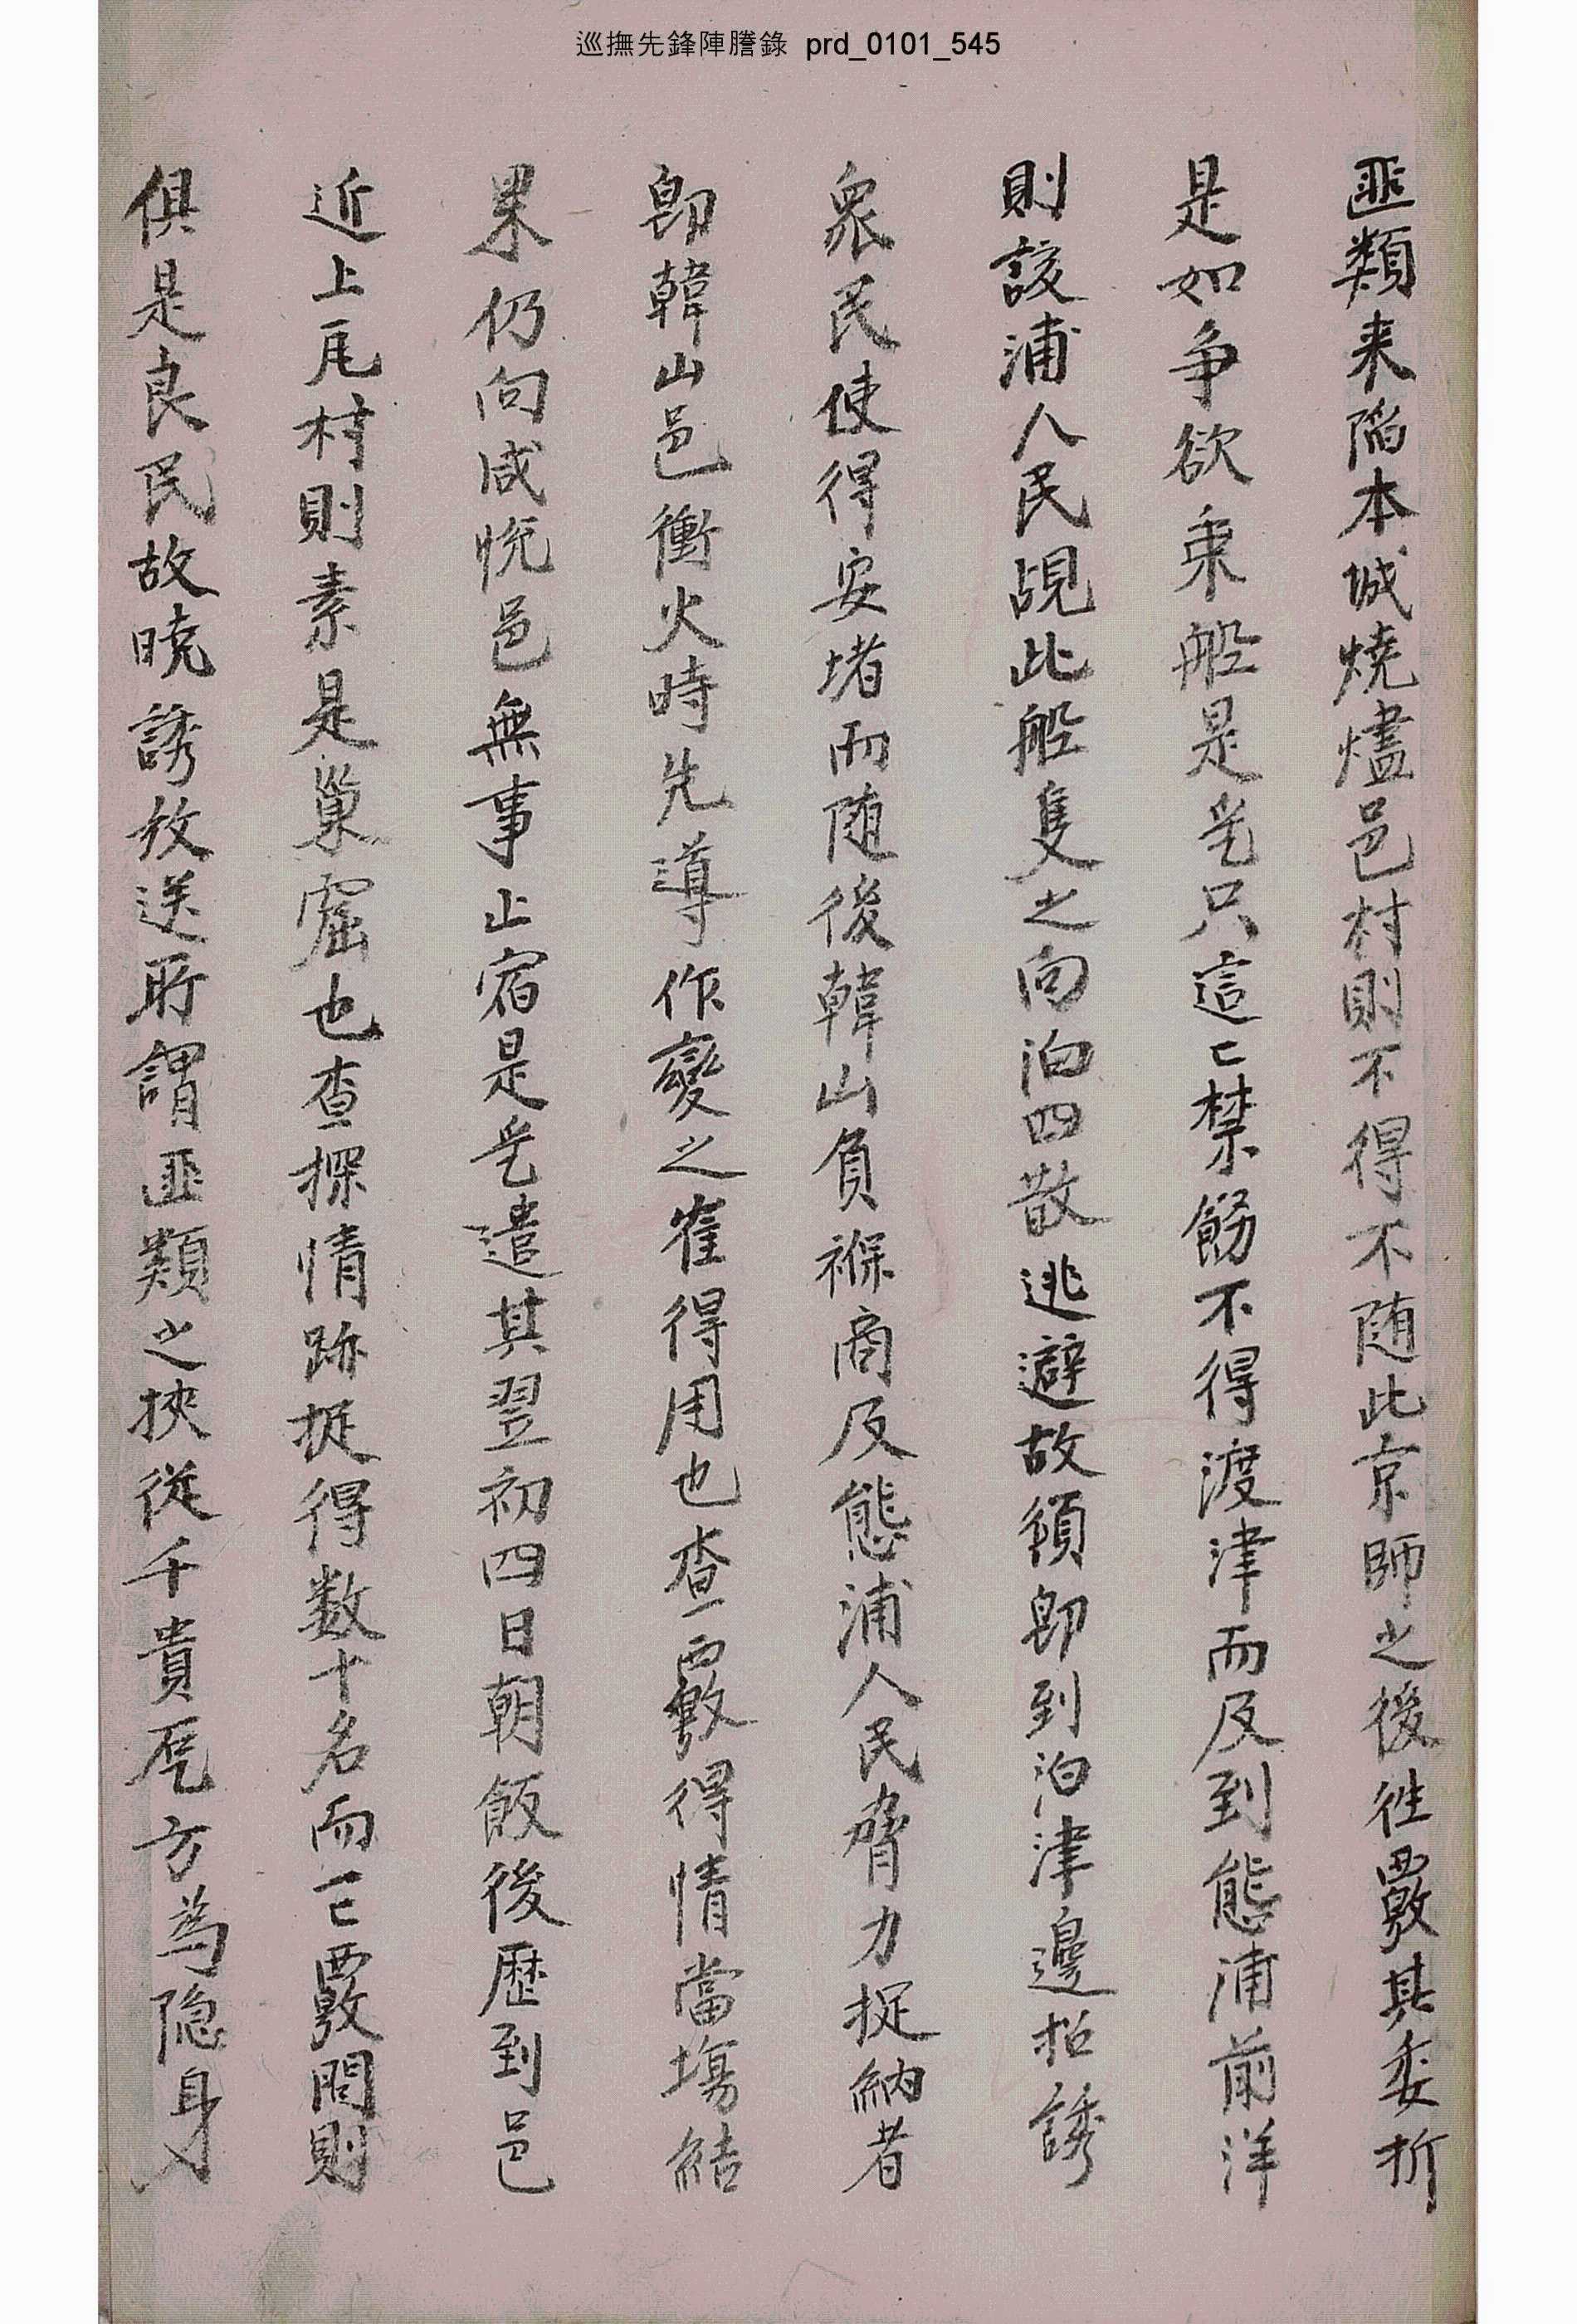 巡撫先鋒陣謄錄 prd_0101_545
匪類来陷本城燒燼邑村則不得不随此京師之後徃覈其委折
是如争欲乗船是乞只這這禁飭不得渡津而及到熊浦前洋
則該浦人民覘此船隻之向泊四散逃避故領卽到泊津邊招誘
衆民使得安堵而随後韓山負褓商及熊浦人民脅力捉納者
卽韓山邑衝火時先導作變之崔得用也查覈得情當塲結
果仍向咸悅邑無事止宿是乞遣其翌初四日朝飯後歴到邑
近上瓦村則素是巢窟也查探情跡捉得数十名而一一覈問則
俱是良民故曉誘放送所謂匪類之挾從千貴瓦方為隐身